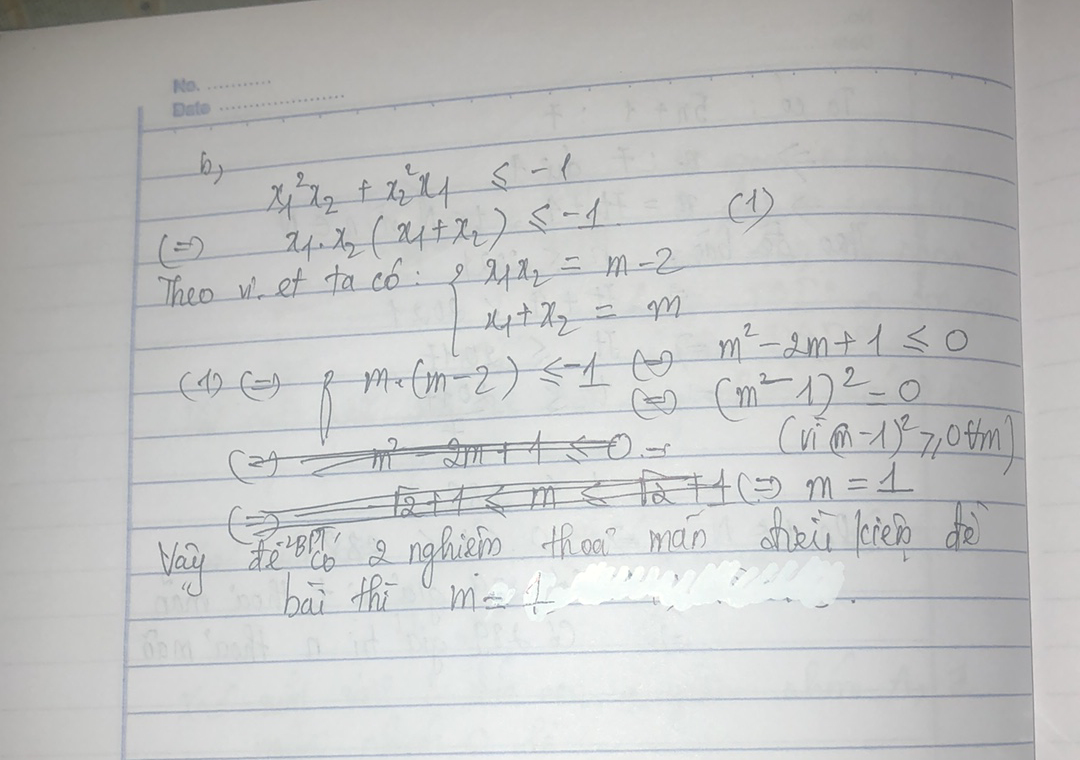 No. ............
Date ....................
b,
x₁²x₂ + x₂²x₁ ≤ -1
(=) x₁.x₂ (x₁+x₂) ≤ -1 (1)
Theo vi. et ta có : { x₁x₂ = m-2
x₁+x₂ = m
(1) (=) { m.(m-2) ≤ -1 (=) m²-2m+1 ≤ 0
(=) (m²-1)² = 0
(=) m² 2m+1 ≤ 0 (vì (m-1)² ≥, 0 ∀m)
(=) √2+1 ≤ m ≤ √2+1 (=) m = 1
Vậy để BPT có 2 nghiệm thoả mãn điều kiện đề
bài thì m = 1 .